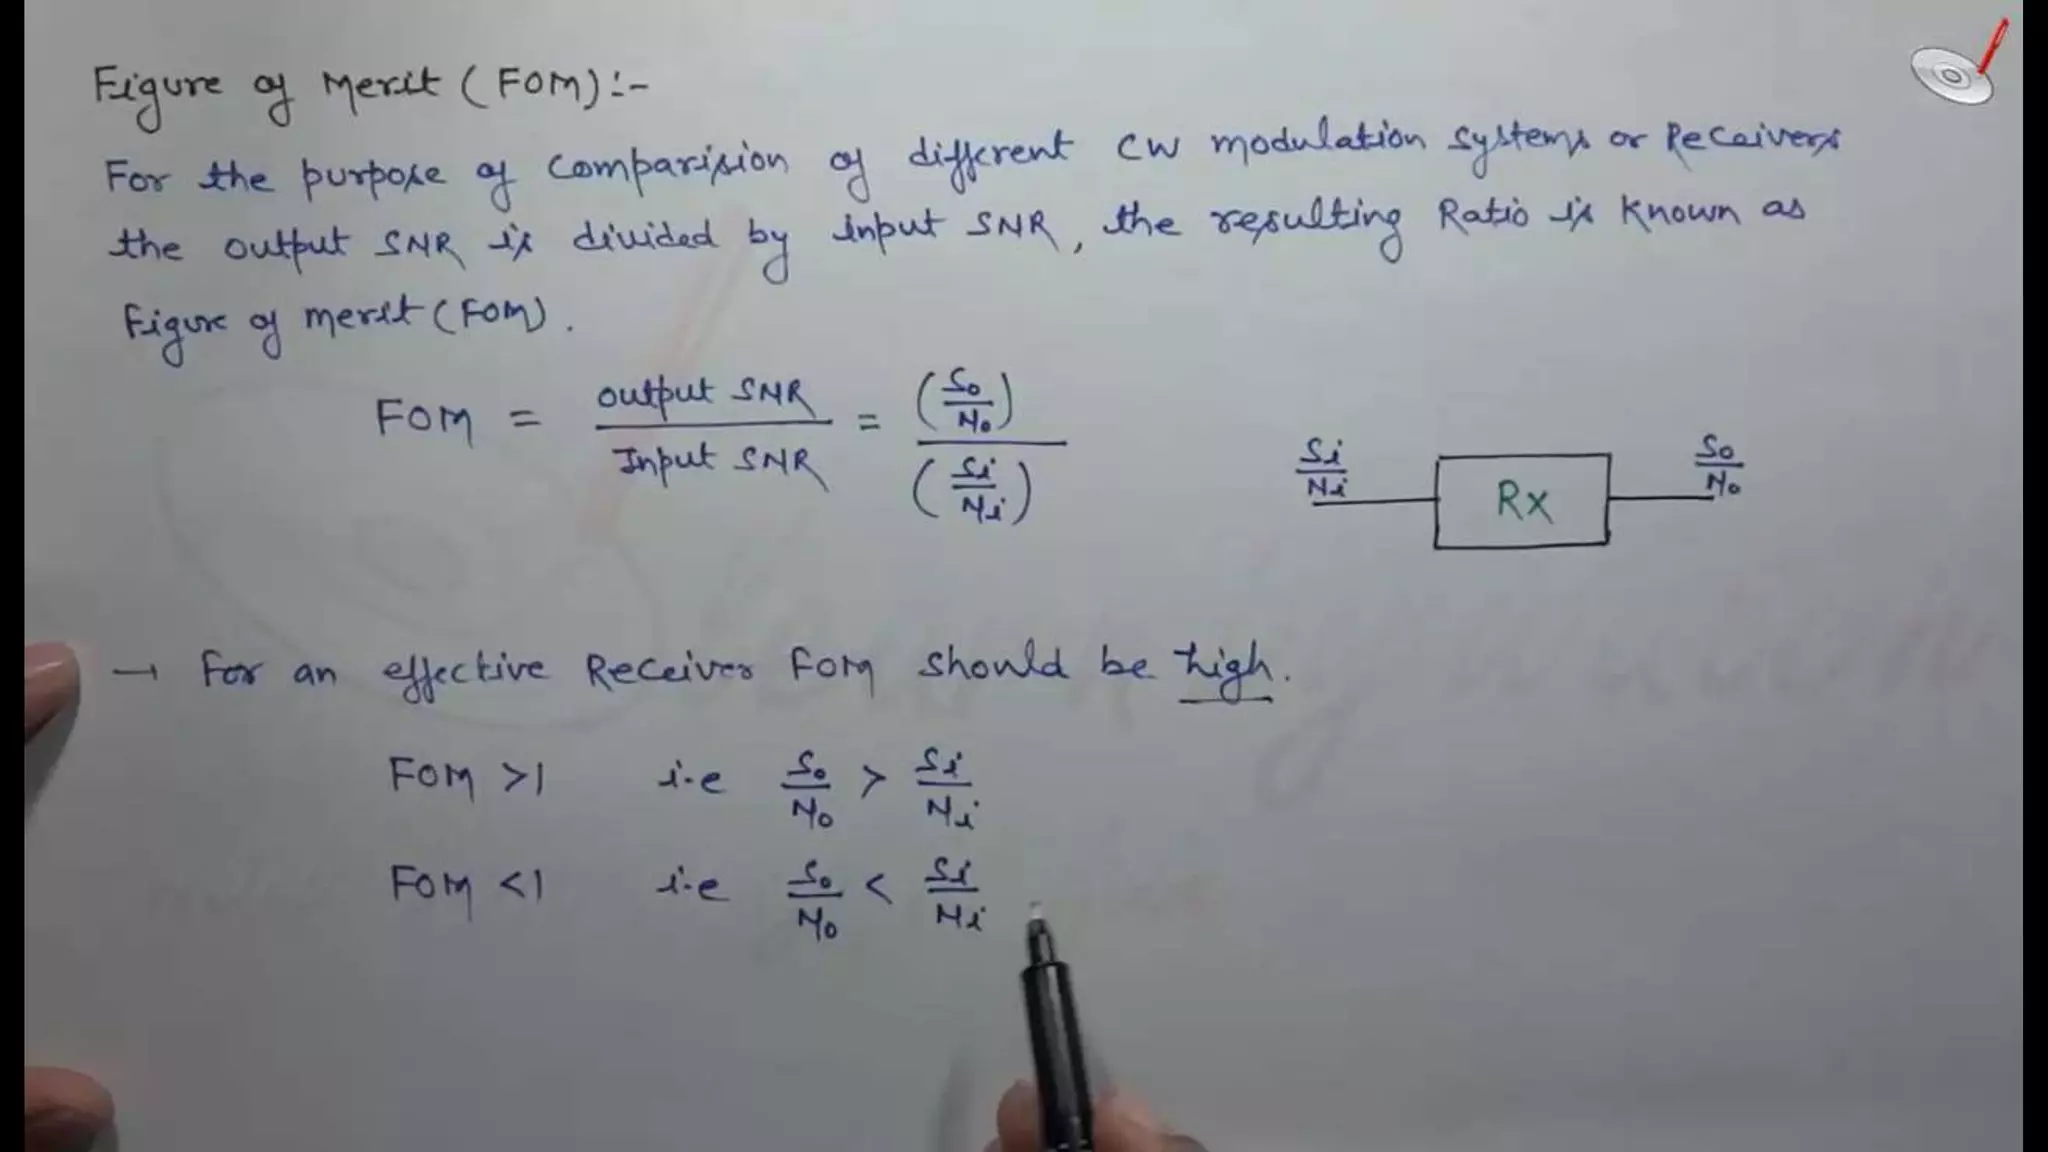 Figure of Merit (FOM):-
For the purpose of comparision of different CW modulation systems or Receivers
the output SNR is divided by input SNR, the resulting Ratio is known as
Figure of merit (FOM).
FOM = output SNR / Input SNR = (So/No) / (Si/Ni)
Si/Ni Rx So/No
→ For an effective Receiver FOM should be high.
FOM >1 i-e So/No > Si/Ni
FOM <1 i-e So/No < Si/Ni